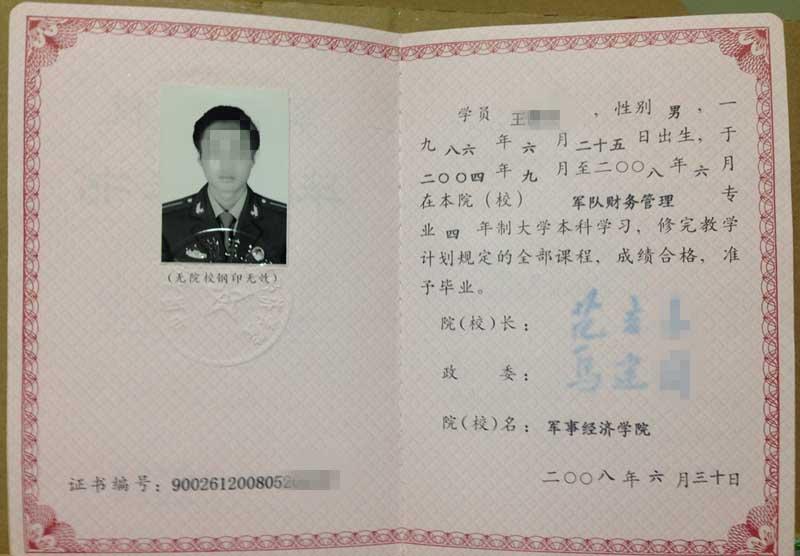 (无院校钢印无效)
证书编号：9002612008052
学员 王 ，性别 男 ，一
九八六 年 六 月 二十五 日出生，于
二〇〇四 年 九 月至二〇〇八年 六 月
在本院（校） 军队财务管理 专
业 四 年制大学本科学习，修完教学
计划规定的全部课程，成绩合格，准
予毕业。
院(校)长：
政 委：
院(校)名：军事经济学院
二〇〇八 年 六 月三十日